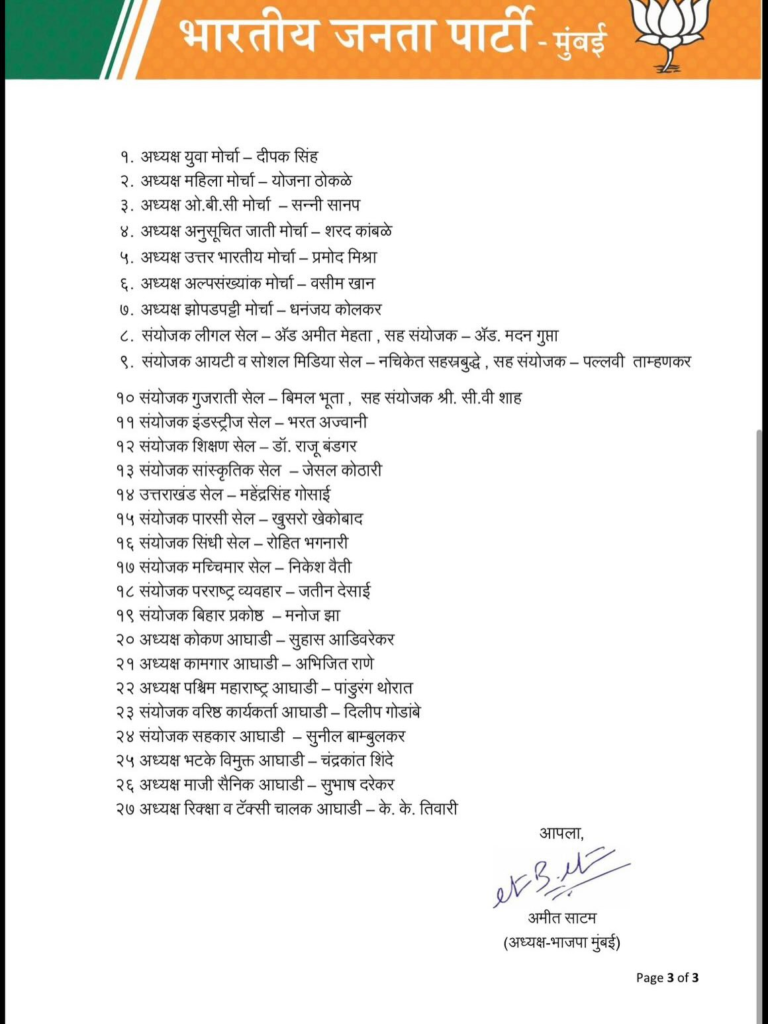 भारतीय जनता पार्टी - मुंबई
१. अध्यक्ष युवा मोर्चा – दीपक सिंह
२. अध्यक्ष महिला मोर्चा – योजना ठोकळे
३. अध्यक्ष ओ.बी.सी मोर्चा – सन्नी सानप
४. अध्यक्ष अनुसूचित जाती मोर्चा – शरद कांबळे
५. अध्यक्ष उत्तर भारतीय मोर्चा – प्रमोद मिश्रा
६. अध्यक्ष अल्पसंख्यांक मोर्चा – वसीम खान
७. अध्यक्ष झोपडपट्टी मोर्चा – धनंजय कोलकर
८. संयोजक लीगल सेल – ॲड अमीत मेहता , सह संयोजक – ॲड. मदन गुप्ता
९. संयोजक आयटी व सोशल मिडिया सेल – नचिकेत सहस्रबुद्धे , सह संयोजक – पल्लवी ताम्हणकर
१० संयोजक गुजराती सेल – बिमल भूता , सह संयोजक श्री. सी.वी शाह
११ संयोजक इंडस्ट्रीज सेल – भरत अज्वानी
१२ संयोजक शिक्षण सेल – डॉ. राजू बंडगर
१३ संयोजक सांस्कृतिक सेल – जेसल कोठारी
१४ उत्तराखंड सेल – महेंद्रसिंह गोसाई
१५ संयोजक पारसी सेल – खुसरो खेकोबाद
१६ संयोजक सिंधी सेल – रोहित भगनारी
१७ संयोजक मच्चिमार सेल – निकेश वैती
१८ संयोजक परराष्ट्र व्यवहार – जतीन देसाई
१९ संयोजक बिहार प्रकोष्ठ – मनोज झा
२० अध्यक्ष कोकण आघाडी – सुहास आडिवरेकर
२१ अध्यक्ष कामगार आघाडी – अभिजित राणे
२२ अध्यक्ष पश्चिम महाराष्ट्र आघाडी – पांडुरंग थोरात
२३ संयोजक वरिष्ठ कार्यकर्ता आघाडी – दिलीप गोडांबे
२४ संयोजक सहकार आघाडी – सुनील बाम्बुलकर
२५ अध्यक्ष भटके विमुक्त आघाडी – चंद्रकांत शिंदे
२६ अध्यक्ष माजी सैनिक आघाडी – सुभाष दरेकर
२७ अध्यक्ष रिक्क्षा व टॅक्सी चालक आघाडी – के. के. तिवारी
आपला,
अमीत साटम
(अध्यक्ष-भाजपा मुंबई)
Page 3 of 3